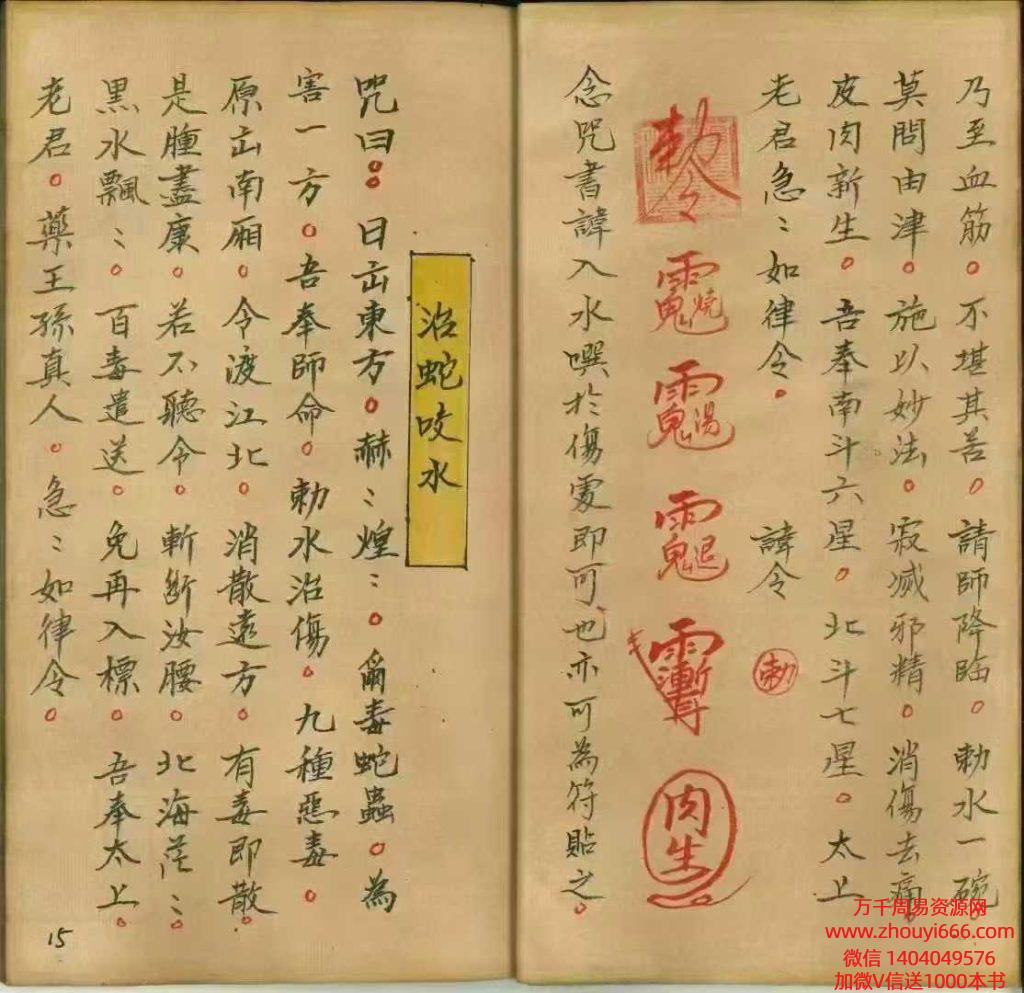 乃至血筋。不堪其苦。請師降臨。勅水一碗。
莫問由津。施以妙法。寂滅邪精。消傷去痛。
皮肉新生。吾奉南斗六星。北斗七星。太上
老君急〻如律令。 諱令 勅
勅令
肉生
念咒書諱入水噀於傷處即可也亦可為符貼之。
治蛇咬水
咒曰：日出東方。赫〻煌〻。爾毒蛇蟲。為
害一方。吾奉師命。勅水治傷。九種惡毒。
原出南厢。令渡江北。消散遠方。有毒即散。
是腫盡康。若不聽令。斬斷汝腰。北海茫〻。
黑水飄〻。百毒遣送。免再入標。吾奉太上。
老君。藥王孫真人。急〻如律令。
15
万千周易资源网
www.zhouyi666.com
微信 1404049576
加微V信送1000本书